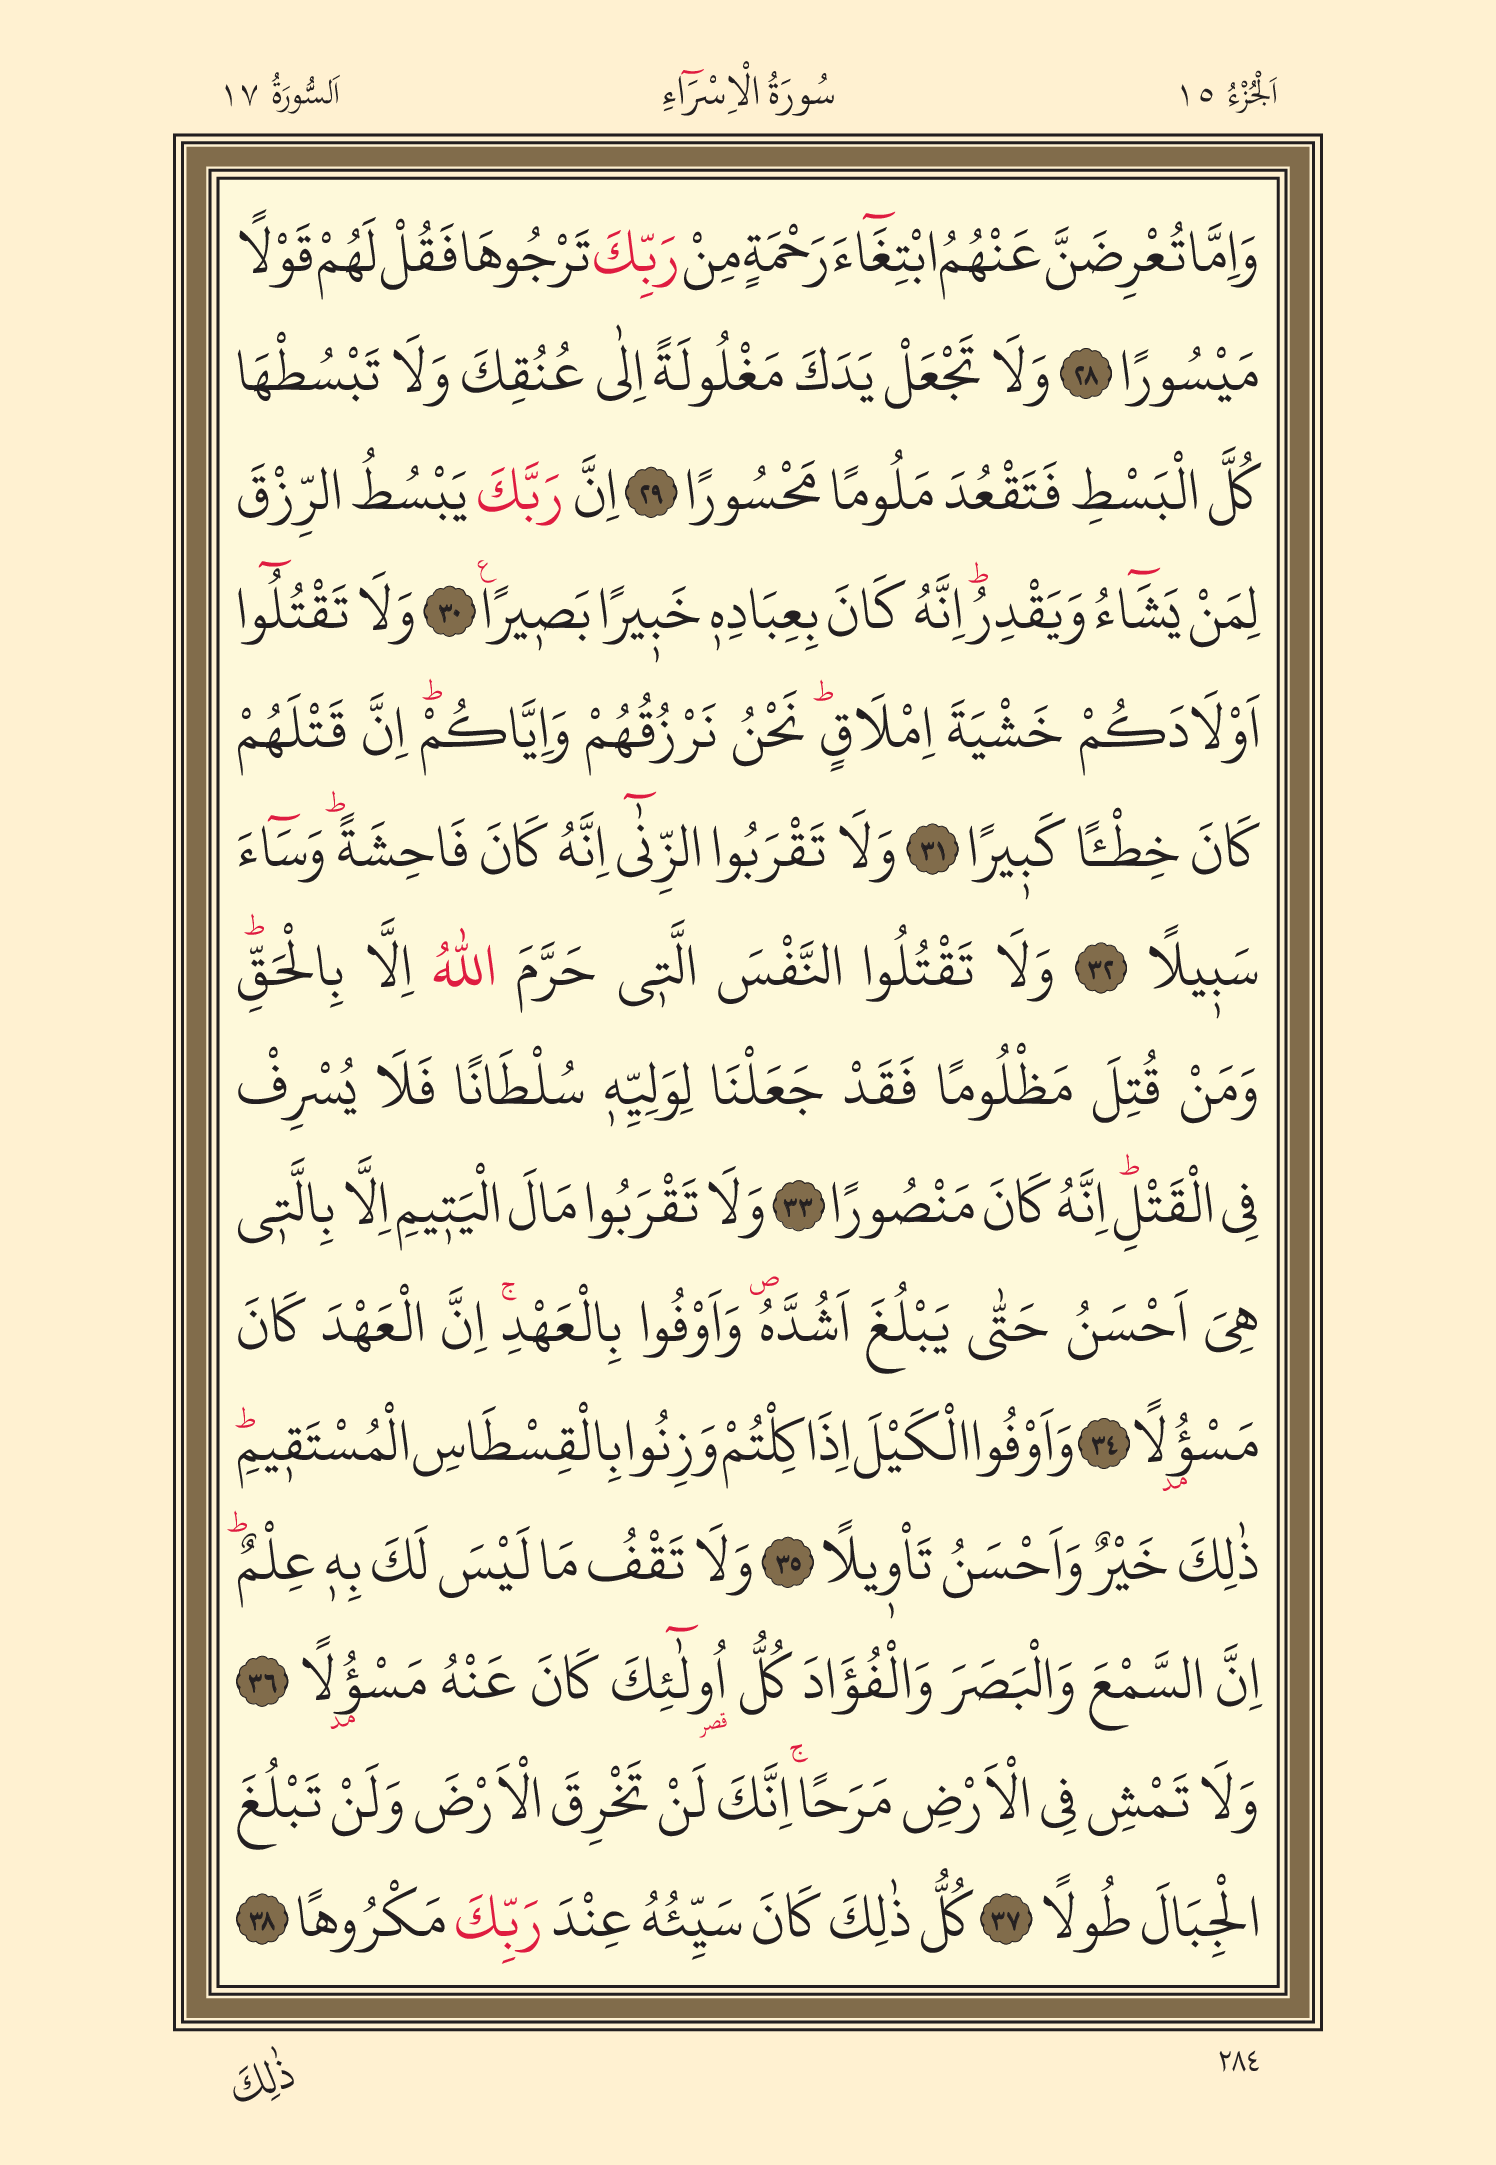 اَلْجُزْءُ ١٥ سُورَةُ الْاِسْرَٓاءِ اَلسُّورَةُ ١٧
وَاِمَّا تُعْرِضَنَّ عَنْهُمُ ابْتِغَٓاءَ رَحْمَةٍ مِنْ رَبِّكَ تَرْجُوهَا فَقُلْ لَهُمْ قَوْلًا
مَيْسُورًا ﴿٢٨﴾ وَلَا تَجْعَلْ يَدَكَ مَغْلُولَةً اِلٰى عُنُقِكَ وَلَا تَبْسُطْهَا
كُلَّ الْبَسْطِ فَتَقْعُدَ مَلُومًا مَحْسُورًا ﴿٢٩﴾ اِنَّ رَبَّكَ يَبْسُطُ الرِّزْقَ
لِمَنْ يَشَٓاءُ وَيَقْدِرُۜ اِنَّهُ كَانَ بِعِبَادِهٖ خَبٖيرًا بَصٖيرًا ع ﴿٣٠﴾ وَلَا تَقْتُلُٓوا
اَوْلَادَكُمْ خَشْيَةَ اِمْلَاقٍ ط نَحْنُ نَرْزُقُهُمْ وَاِيَّاكُمْ ط اِنَّ قَتْلَهُمْ
كَانَ خِطْـًٔا كَبٖيرًا ﴿٣١﴾ وَلَا تَقْرَبُوا الزِّنٰٓى اِنَّهُ كَانَ فَاحِشَةً ط وَسَٓاءَ
سَبٖيلًا ﴿٣٢﴾ وَلَا تَقْتُلُوا النَّفْسَ الَّتٖى حَرَّمَ اللّٰهُ اِلَّا بِالْحَقِّ ط
وَمَنْ قُتِلَ مَظْلُومًا فَقَدْ جَعَلْنَا لِوَلِيِّهٖ سُلْطَانًا فَلَا يُسْرِفْ
فِى الْقَتْلِ ط اِنَّهُ كَانَ مَنْصُورًا ﴿٣٣﴾ وَلَا تَقْرَبُوا مَالَ الْيَتٖيمِ اِلَّا بِالَّتٖى
هِىَ اَحْسَنُ حَتّٰى يَبْلُغَ اَشُدَّهُ ص وَاَوْفُوا بِالْعَهْدِ ج اِنَّ الْعَهْدَ كَانَ
مَسْؤُلًا مد ﴿٣٤﴾ وَاَوْفُوا الْكَيْلَ اِذَا كِلْتُمْ وَزِنُوا بِالْقِسْطَاسِ الْمُسْتَقٖيمِ ط
ذٰلِكَ خَيْرٌ وَاَحْسَنُ تَاْوٖيلًا ﴿٣٥﴾ وَلَا تَقْفُ مَا لَيْسَ لَكَ بِهٖ عِلْمٌ ط
اِنَّ السَّمْعَ وَالْبَصَرَ وَالْفُؤَادَ كُلُّ اُولٰٓئِكَ قصر كَانَ عَنْهُ مَسْؤُلًا مد ﴿٣٦﴾
وَلَا تَمْشِ فِى الْاَرْضِ مَرَحًا ج اِنَّكَ لَنْ تَخْرِقَ الْاَرْضَ وَلَنْ تَبْلُغَ
الْجِبَالَ طُولًا ﴿٣٧﴾ كُلُّ ذٰلِكَ كَانَ سَيِّئُهُ عِنْدَ رَبِّكَ مَكْرُوهًا ﴿٣٨﴾
٢٨٤ ذٰلِكَ